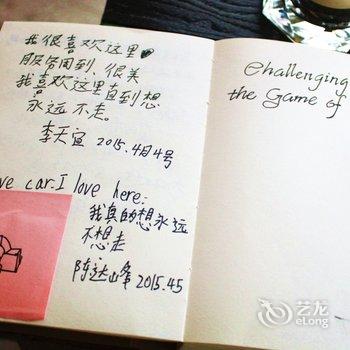 我很喜欢这里
服务周到、很美
我喜欢这里直到想
永远不走。
李天宣 2015.4月4号
ve car. I love here:
我真的想永远
不想走
陈达峰 2015.4.5
challenging
the Game of
艺龙
eLong